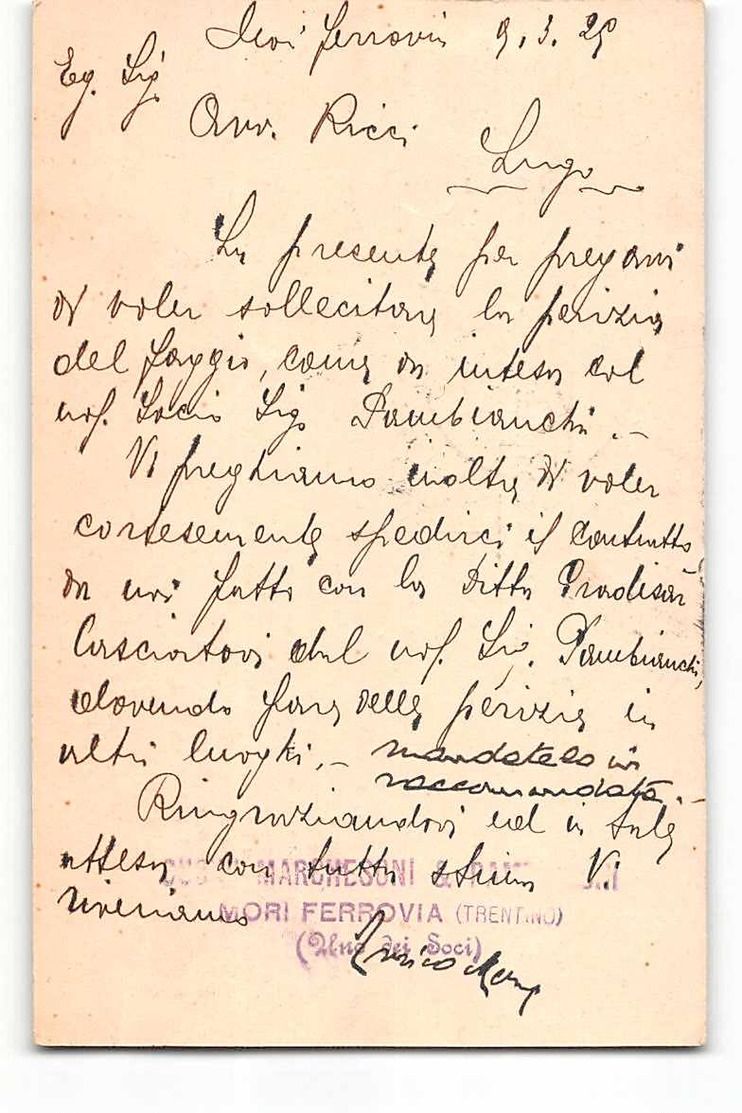 Mori ferrovia 9.3.29
Eg. Sig.
Avv. Ricci
Lugo
La presente per pregarvi
di voler sollecitare la perizia
del Faggio, come da intesa col
nos. Socio Sig. Pambianchi. -
Vi preghiamo inoltre di voler
cortesemente spedirci il contratto
da noi fatto con la Ditta
lasciatovi dal nos. Sig. Pambianchi,
dovendo fare delle perizie in
altri luoghi. - mandatelo in
raccomandata. -
Ringraziandovi ed in tale
attesa con tutta stima Vi
MARCHESONI &
riveriamo
MORI FERROVIA (TRENTINO)
(Uno dei Soci)
Enrico